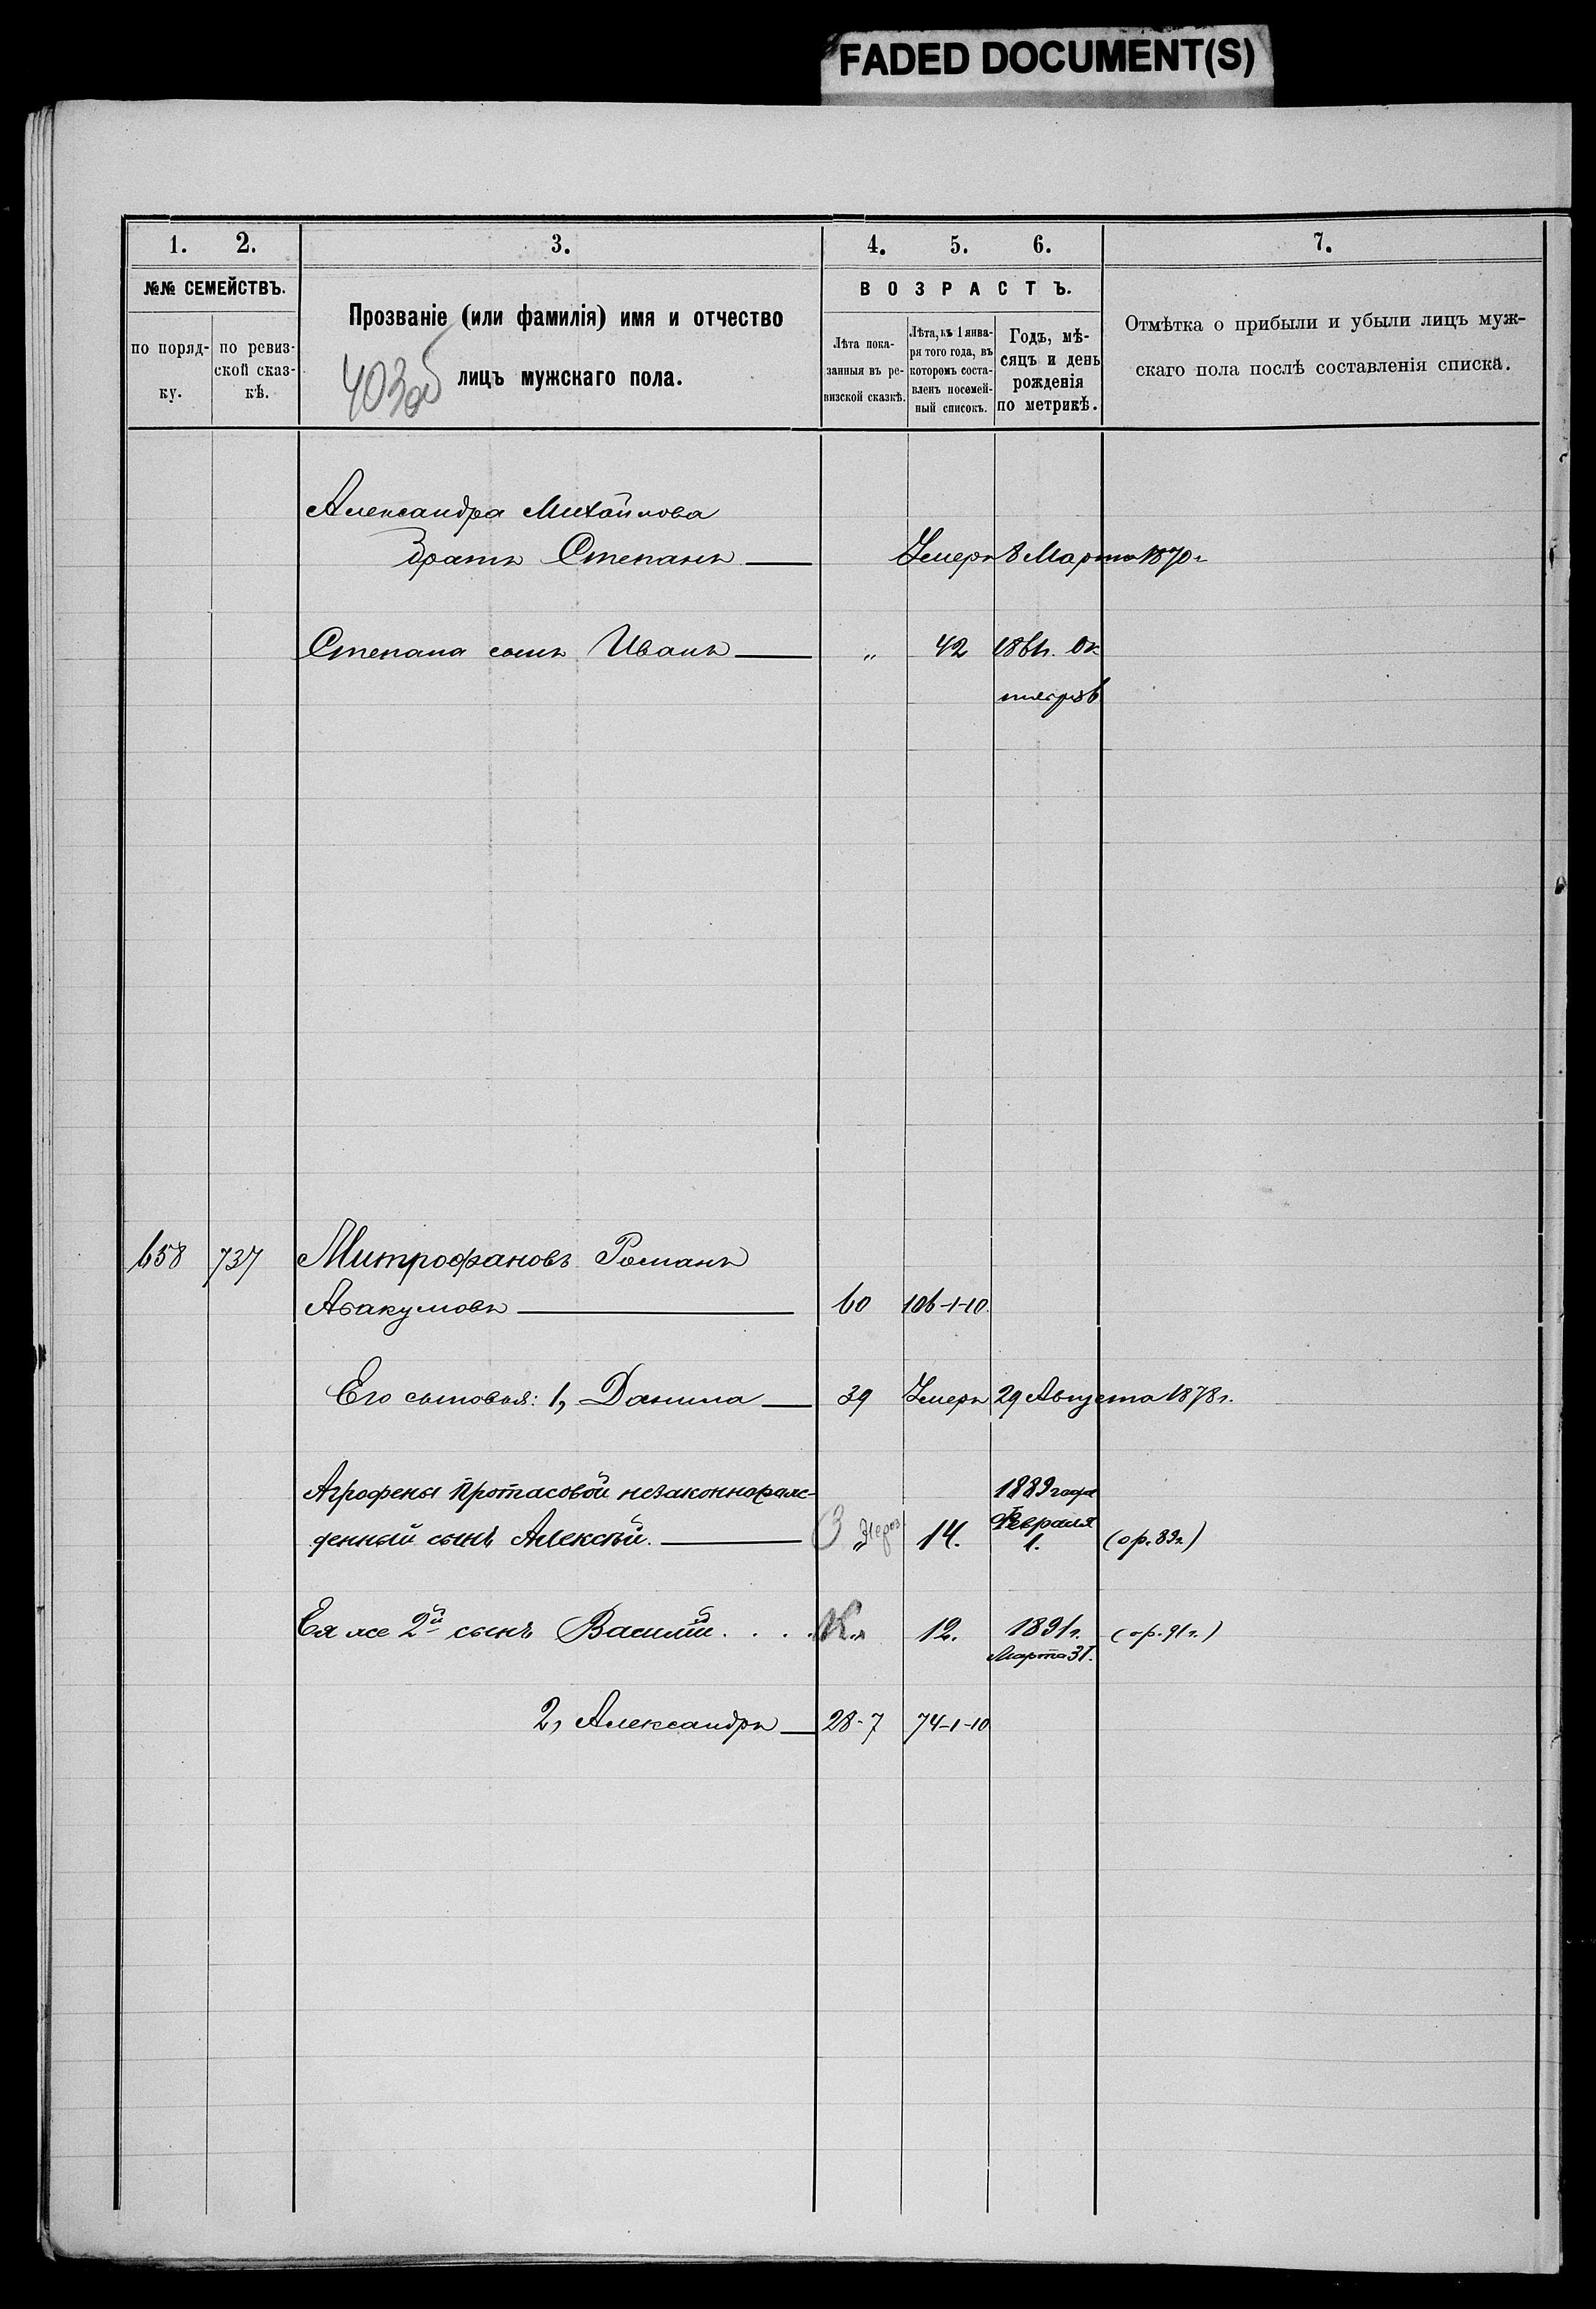 FADED DOCUMENT(S)
1. 2. 3. 4. 5. 6. 7.
№№ СЕМЕЙСТВЪ.
по поряд-
ку.
по ревиз-
ской сказ-
кѣ.
Прозваніе (или фамилія) имя и отчество
лицъ мужскаго пола.
403об
ВОЗРАСТЪ.
Лѣта пока-
занныя въ ре-
визской сказкѣ.
Лѣта, къ 1 янва-
ря того года, въ
которомъ соста-
вленъ посемей-
ный списокъ.
Годъ, мѣ-
сяцъ и день
рожденія
по метрикѣ.
Отмѣтка о прибыли и убыли лицъ муж-
скаго пола послѣ составленія списка.
Александра Михайлова
братъ Степанъ — Умеръ 8 Марта 1870 г
Степана сынъ Иванъ — „ 42 1861г. Ок
тября 6
658 737 Митрофановъ Романъ
Авакумовъ — 60 106-1-10.
Его сыновья: 1, Данила — 39 Умеръ 29 Августа 1878 г.
Агрофены Протасовой незаконнорож- 1889 года
денный сынъ Алексѣй. — „ 14. Февраля 1. (ор. 89г.)
Ея же 2й сынъ Василий . . . . 12. 1891 г. (ор. 91 г.)
Марта 31.
2, Александръ — 28-7 74-1-10